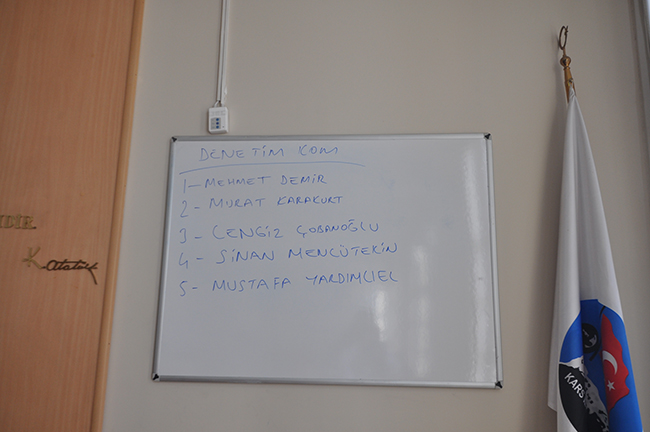 DENETİM KOM
1- MEHMET DEMİR
2- MURAT KARAKURT
3- CENGİZ ÇOBANOĞLU
4- SİNAN MENCÜTEKİN
5- MUSTAFA YARDIMCIEL
K. Atatürk
KARS